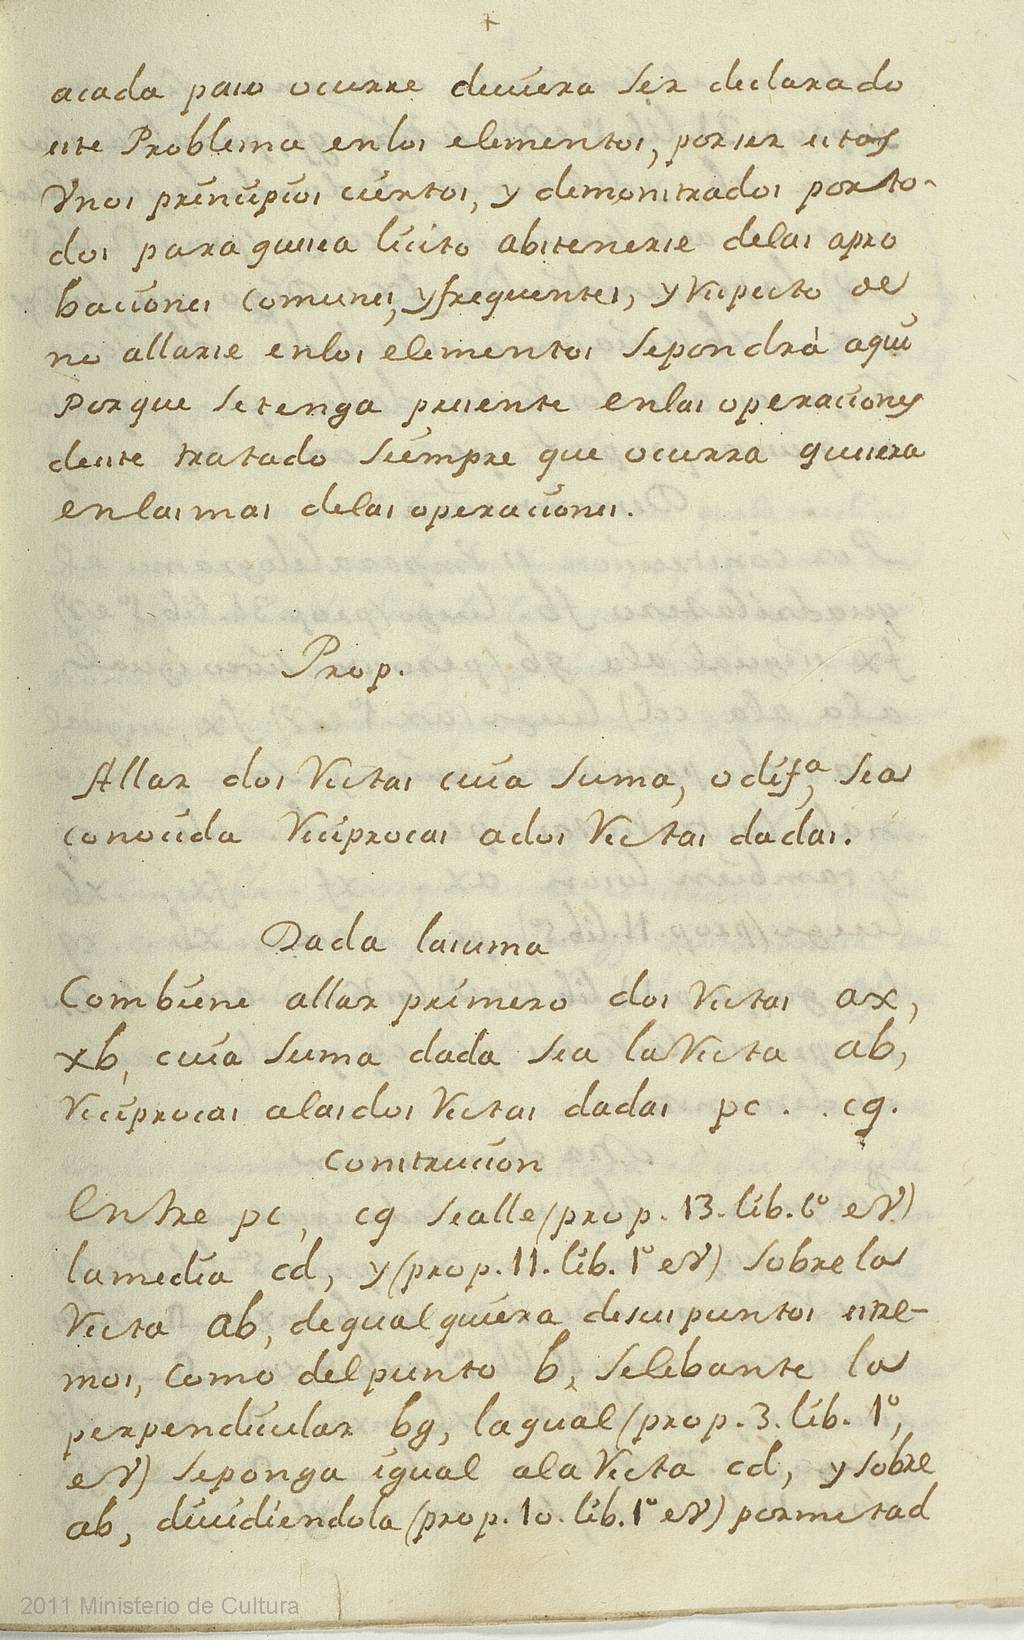 +
acada paso ocurre deviera ser declarado
este Problema enlos elementos, porser estos
Vnos principios ciertos, y demonstrados porto-
dos para quesea licito abstenerse delas apro
baciones Comunes, yfrequentes, y Respecto de
no allarse enlos elementos Sepondrà aqui
Porque Setenga presente enlas operaciones
deeste tratado Siempre que ocurra quiera
enlasmas delas operaciones.
Prop.
Allar dos Rectas cuia Suma, o dif.ª, Sea
conocida Reciprocas ados Rectas dadas.
Dada lasuma
Combiene allar primero dos Rectas ax,
xb, cuia Suma dada Sea laRecta ab,
Reciprocas alasdos Rectas dadas pc . . cq.
Constrvcion
Entre pc, cq Sealle (prop. 13. lib. 6º eV)
lamedia cd, y (prop. 11. lib. 1º eV) Sobre la
Recta ab, dequalquiera desus puntos estre-
mos, Como delpunto b, Selebante la
perpendicular bg, laqual (prop. 3. lib. 1º,
eV) Seponga igual ala Recta cd, y Sobre
ab, dividiendola (prop. 10. lib. 1º eV) pormetad
2011 Ministerio de Cultura